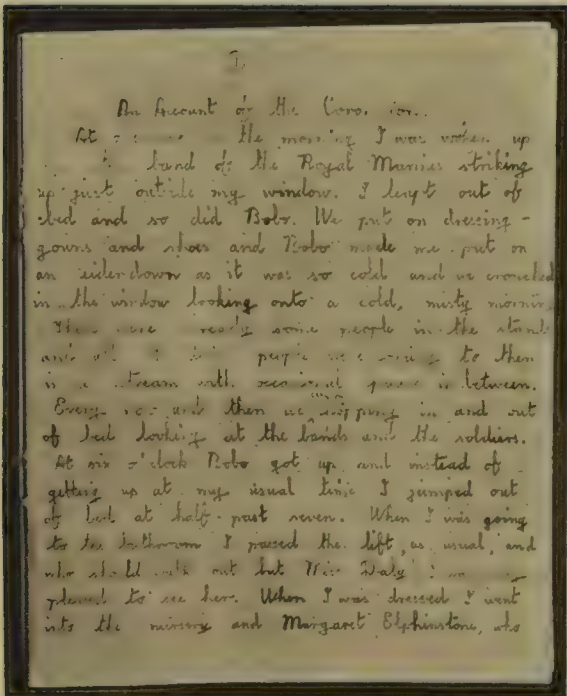 1
An Account of the
At the morning I was woken up
band of the Royal Marines striking
up just outside my window. I leapt out of
bed and so did Bobo. We put on dressing-
gowns and shoes and Bobo made me put on
an eiderdown as it was so cold and we crouched
in the window looking onto a cold, misty morning
There were already some people in the stands
and all people were coming to them
in a stream with occasional in between.
Every now and then we hopping in and out
of bed looking at the bands and the soldiers.
At six o'clock Bobo got up and instead of
getting up at my usual time I jumped out
of bed at half-past seven. When I was going
to the bathroom I passed the lift, as usual, and
who should walk out but Miss Daly! I was
pleased to see her. When I was dressed I went
into the nursery and Margaret Elphinstone, who